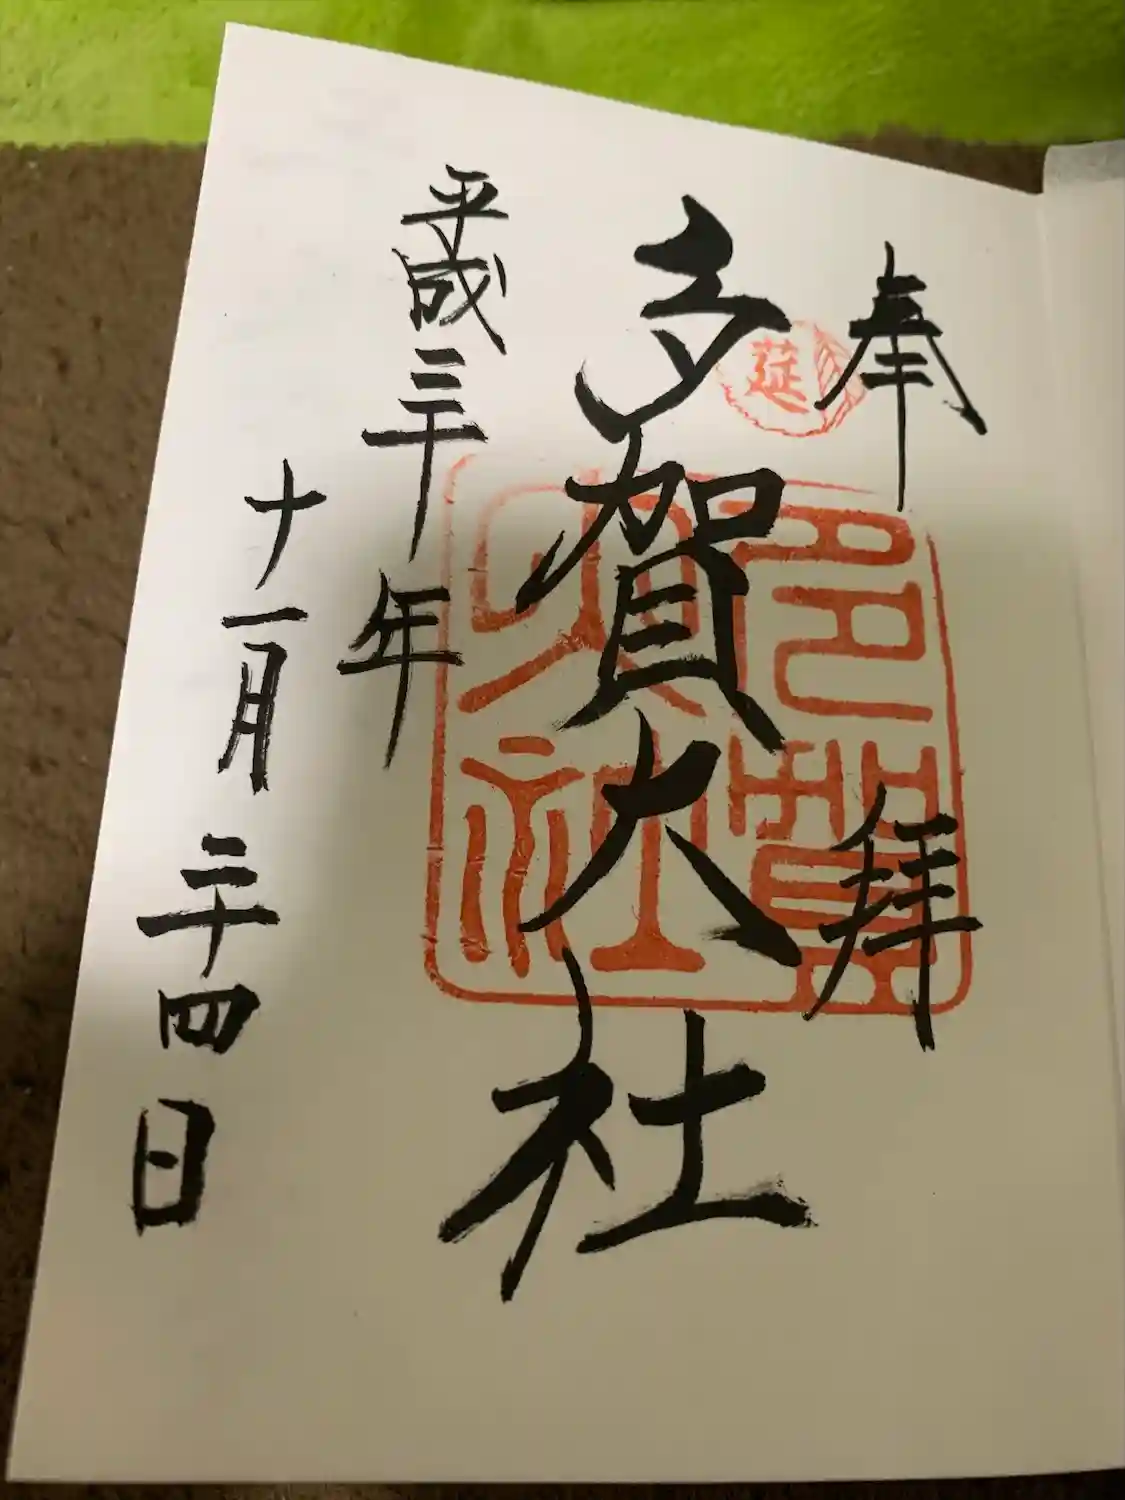 奉拜
延
多賀大社
多賀大社
平成三十年
十一月二十四日